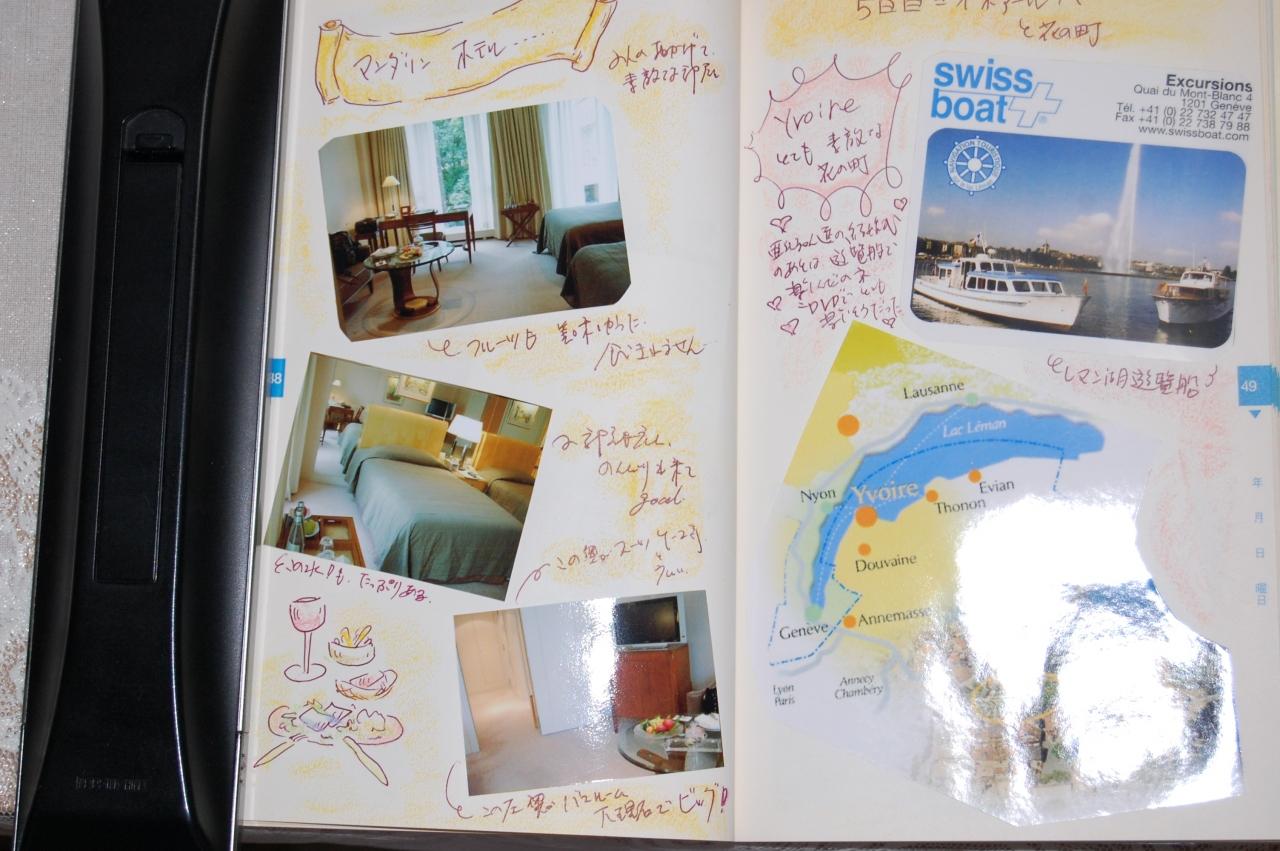 マンダリン ホテル……
みんなのおかげで、
素敵なお部屋
フルーツも 美味しかった。
食べきれません
お部屋も広く、
のんびり出来て
good
この奥が スーツケース
お水も たっぷりある。
この左奥が バスルーム
大理石で ビッグ!
48
5日目
と 花の町
Yvoire
とても 素敵な
花の町
のあとは 遊覧船で
楽しんだのネ
DVDで、とても
楽しそうだった
swiss
boat
Excursions
Quai du Mont-Blanc 4
1201 Genève
Tél. +41 (0) 22 732 47 47
Fax +41 (0) 22 738 79 88
www.swissboat.com
レマン湖遊覧船
49
年
月
日
曜日
Lausanne
Lac Léman
Nyon
Yvoire
Evian
Thonon
Douvaine
Genève
Annemasse
Lyon
Paris
Annecy
Chambéry